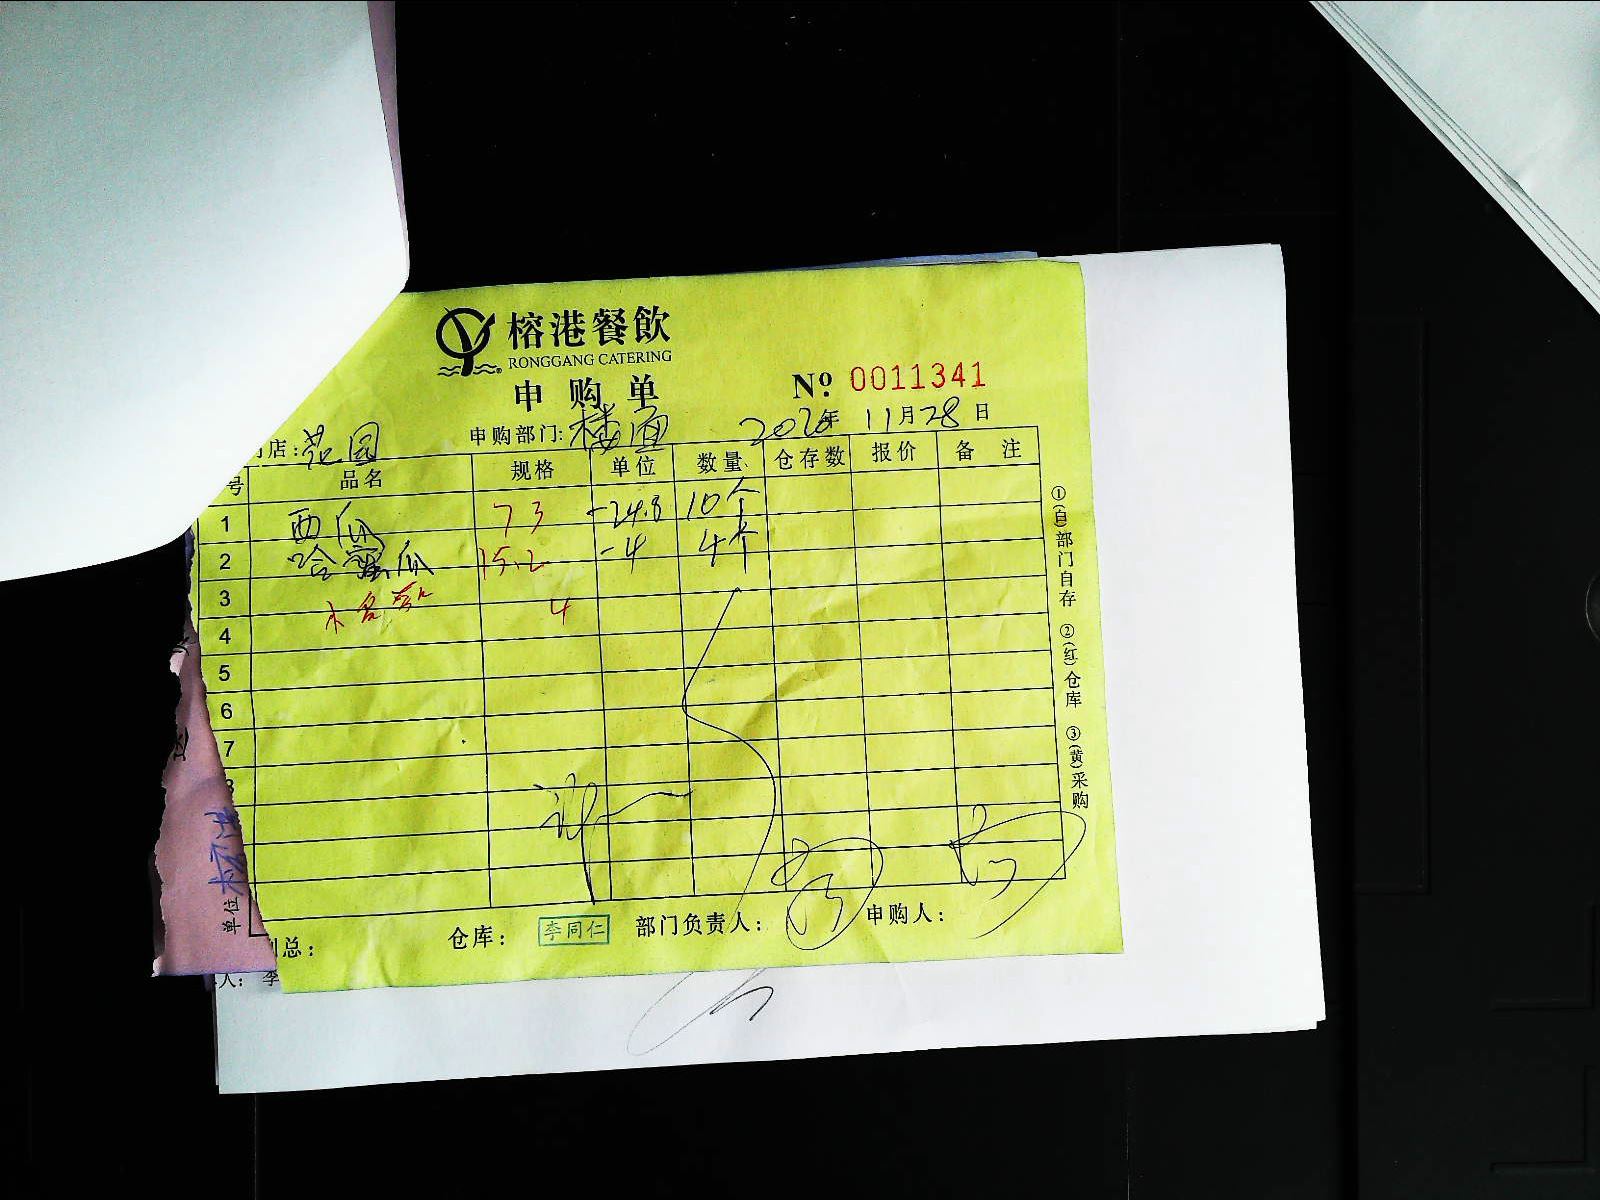 榕港餐飲
RONGGANG CATERING
申购单 № 0011341
店: 花园 申购部门: 楼面 2020年 11月28日
号 品名 规格 单位 数量 仓存数 报价 备注
1 西瓜 73 -24.8 10个
2 哈蜜瓜 15.2 -4 4个
3 4
4
5
6
7
8
①(白)部门自存 ②(红)仓库 ③(黄)采购
总: 仓库: 李同仁 部门负责人: 申购人:
单位
人: 李